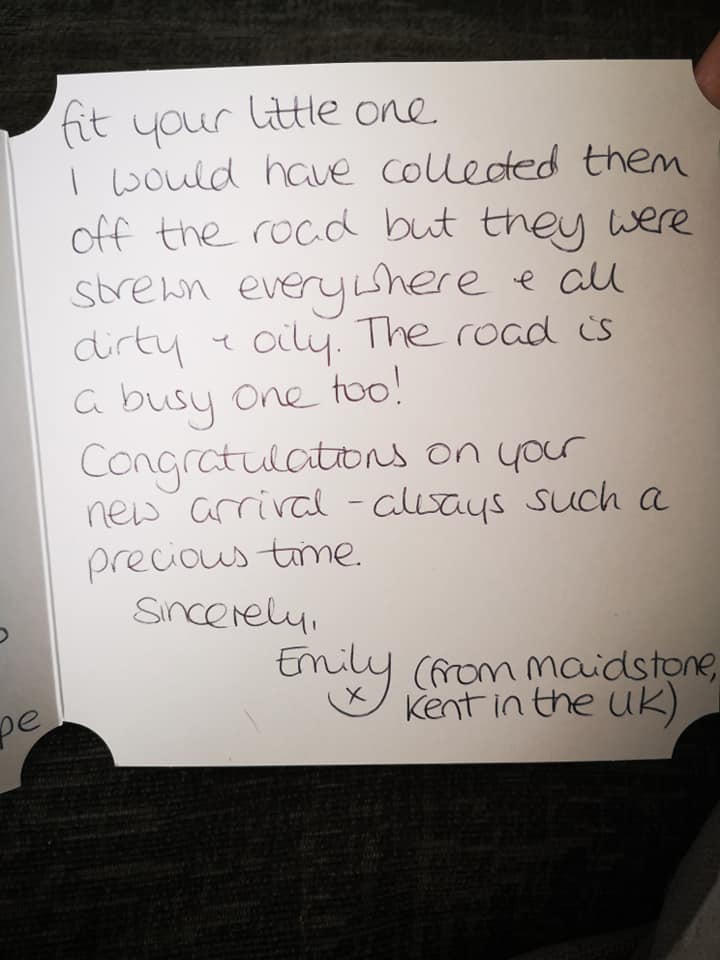 fit your little one.
I would have collected them
off the road but they were
strewn everywhere & all
dirty & oily. The road is
a busy one too!
Congratulations on your
new arrival - always such a
precious time.
Sincerely,
Emily (from Maidstone,
x Kent in the UK)